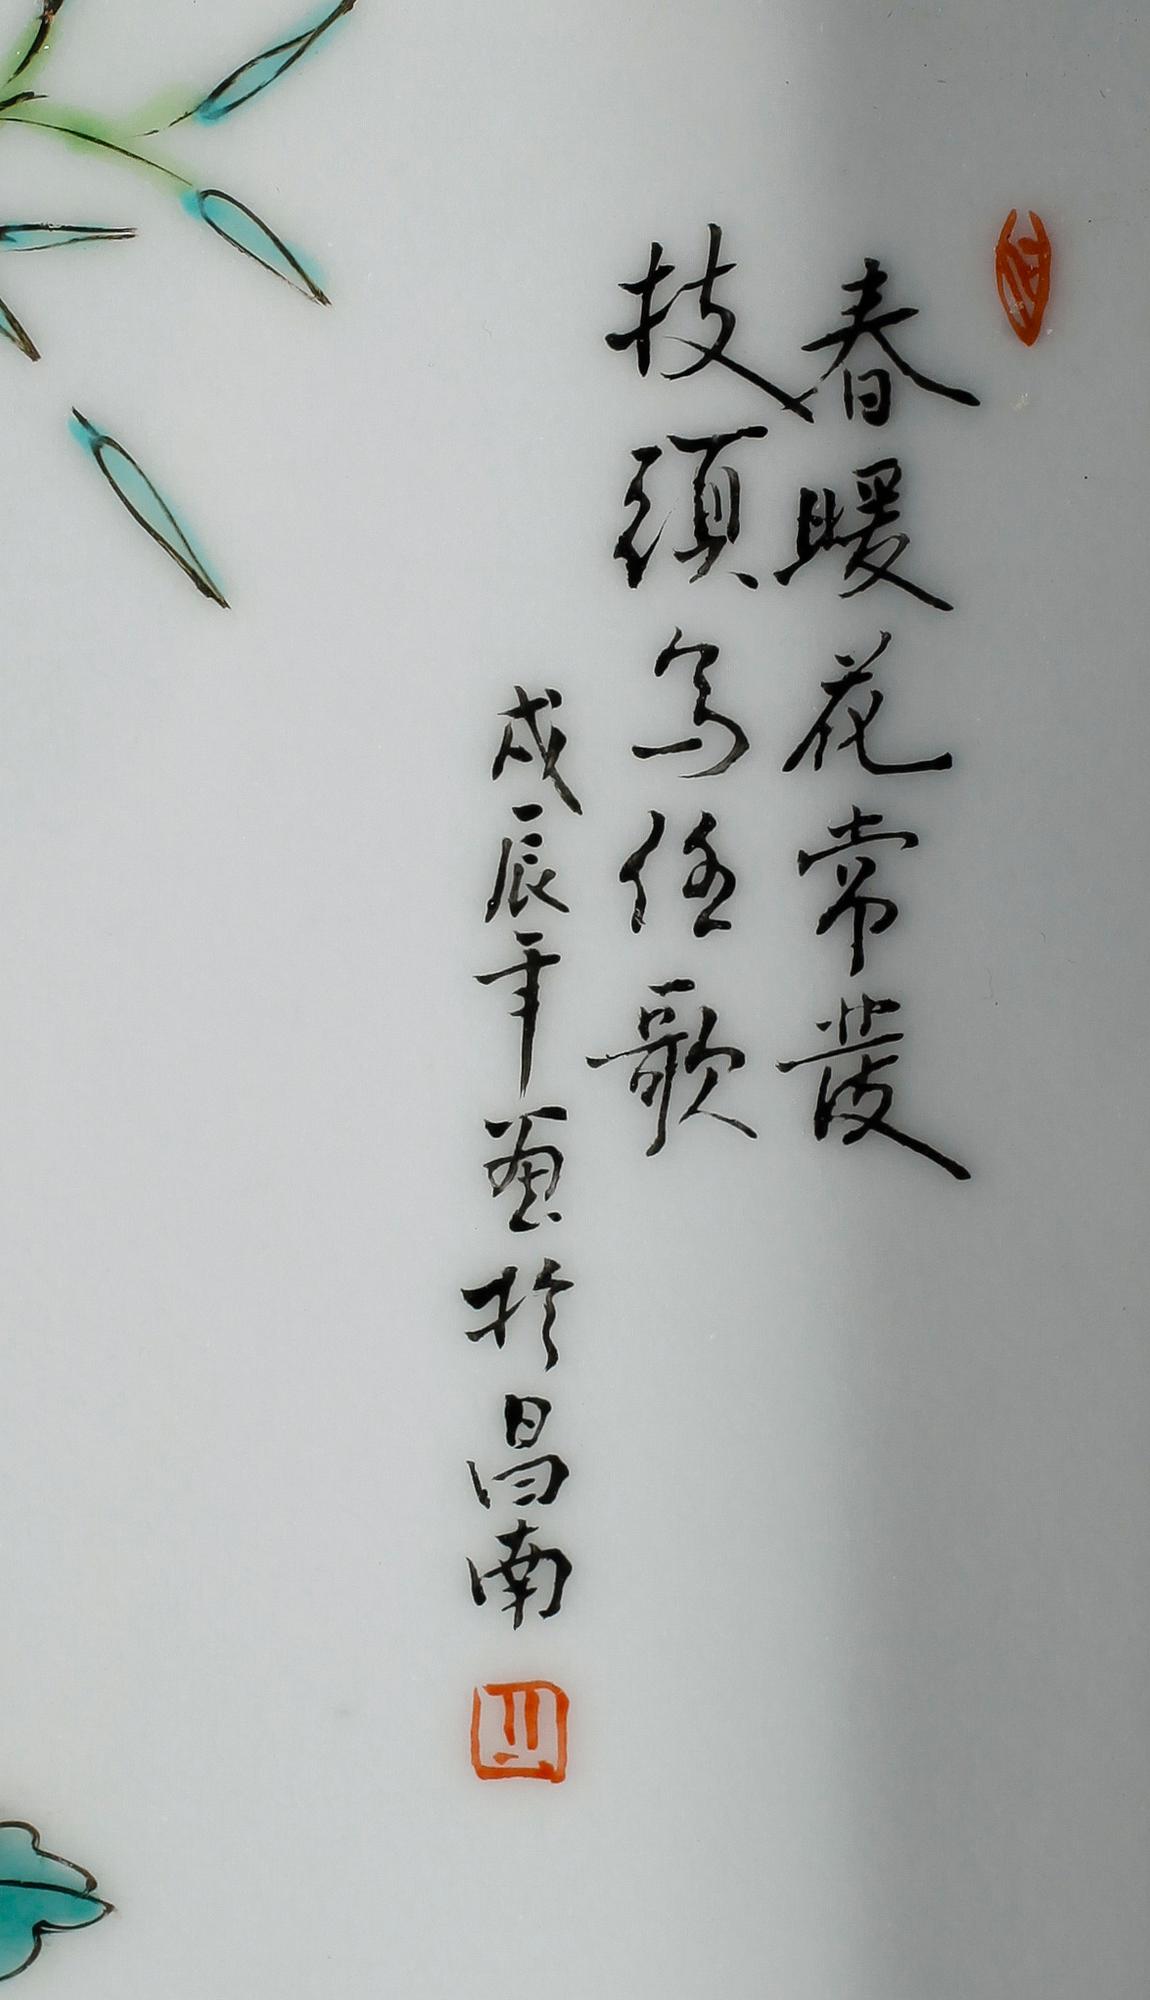 春暖花常發
技頭鳥任歌
戊辰年画於昌南